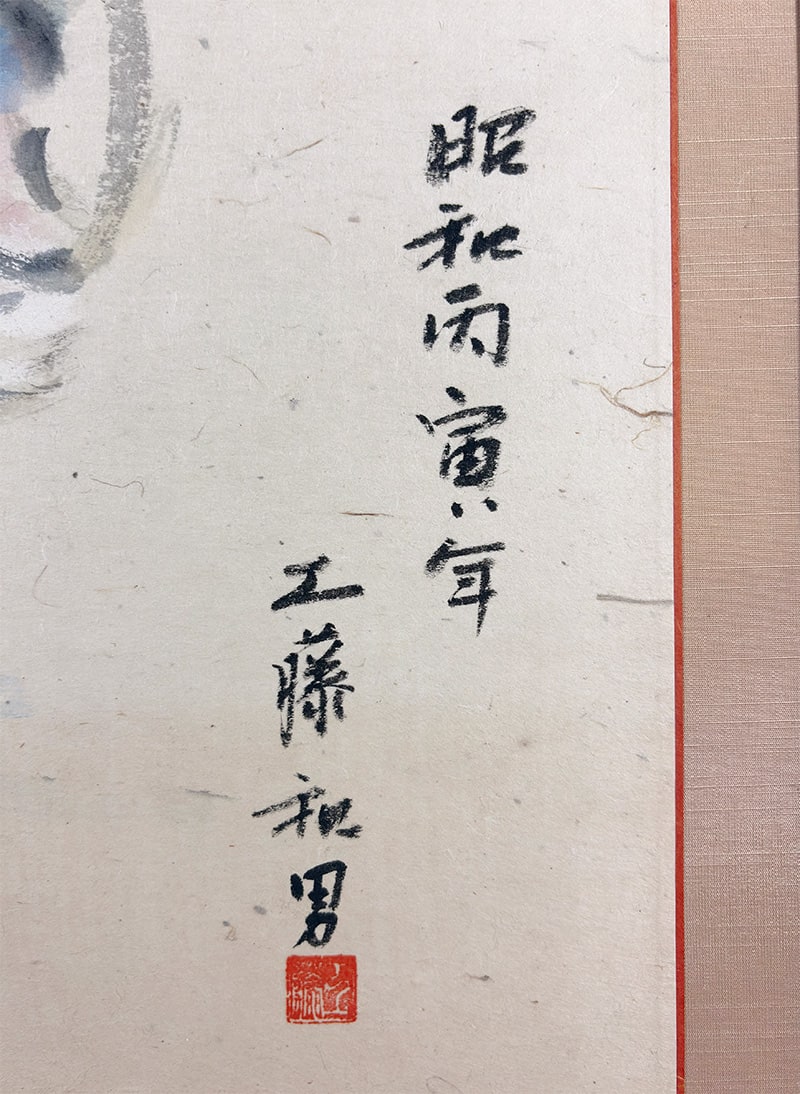 昭和丙寅年
工藤和男